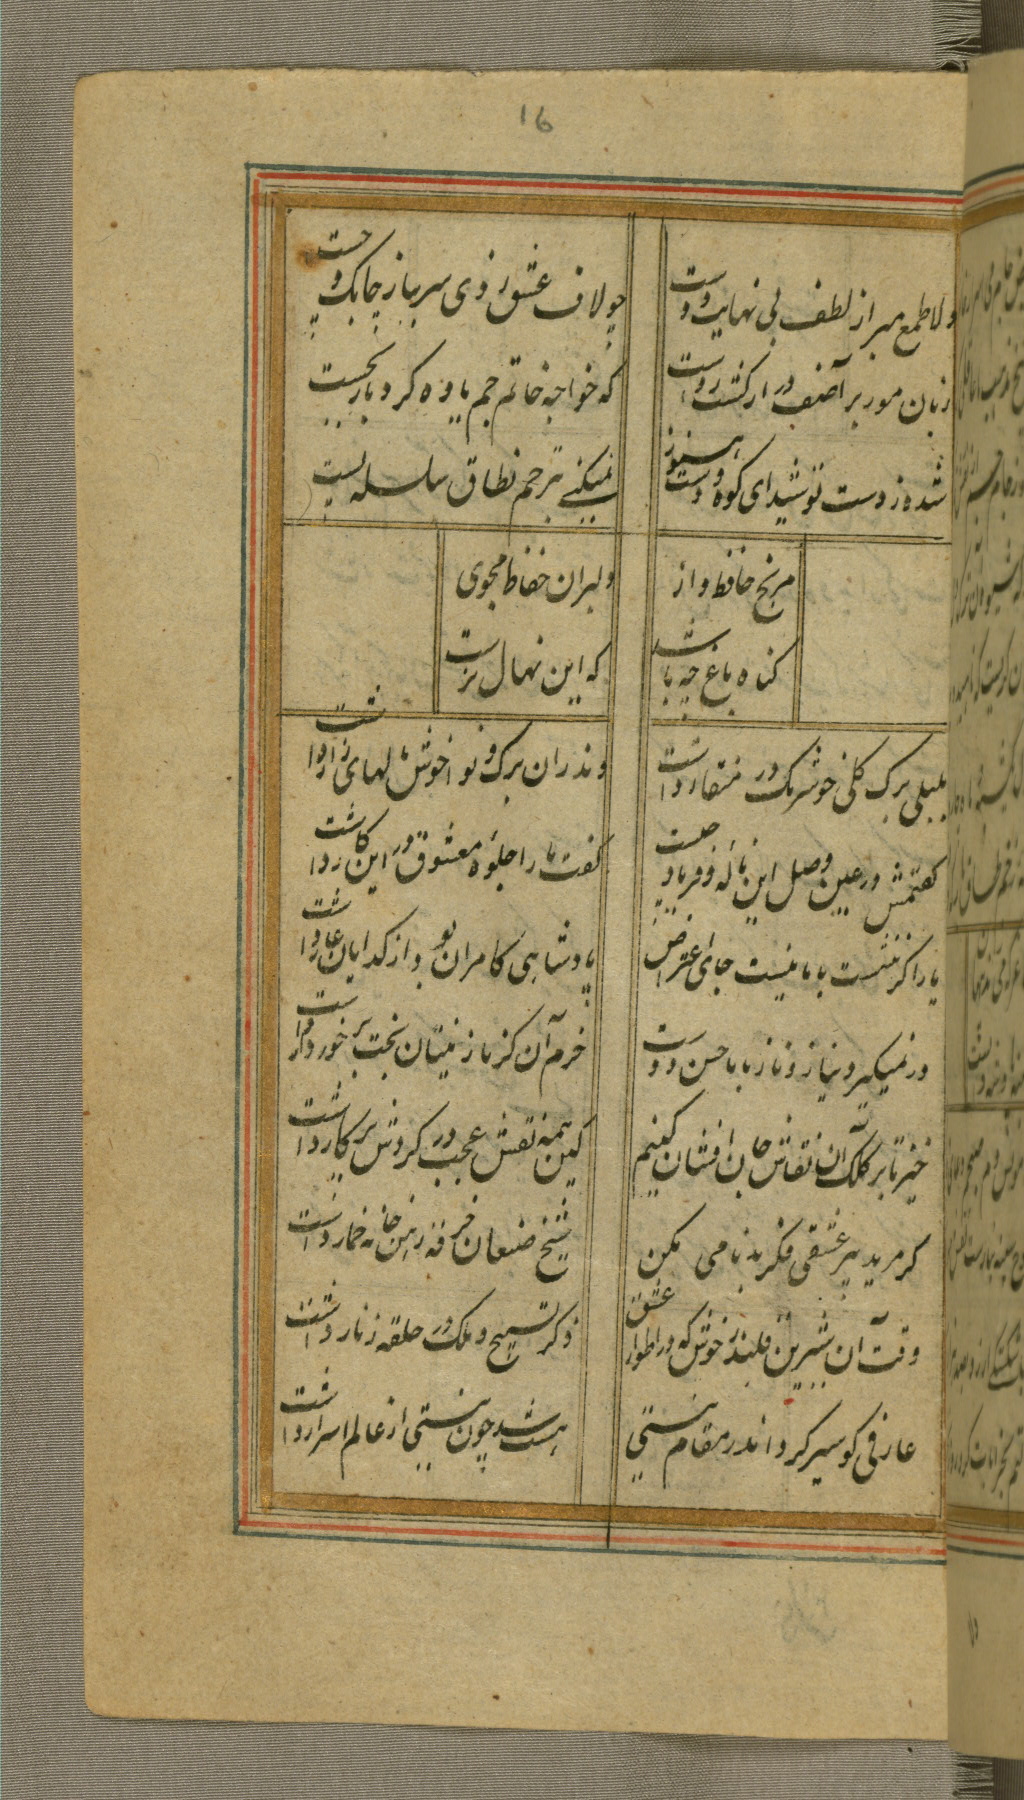 16
دلا طمع مبر از لطف بی نهایت دوست
چو لاف عشق زدی سر بباز چابک و چست
زبان مور بر آصف دراز گشت رواست
که خواجه خاتم جم یاوه کرد و باز نجست
شده ز دست تو شیدای کوه و دشت هنوز
نمیکنی ترحم نطاق سلسله سست
مرنج حافظ و از
دلبران حفاظ مجوی
گناه باغ چه باشد
که این نهال نرست
بلبلی برگ گلی خوشرنگ در منقار داشت
وندران برگ و نوا خوش نالهای زار داشت
گفتمش در عین وصل این ناله و فریاد چیست
گفت ما را جلوه معشوق در این کار داشت
یار اگر ننشست با ما نیست جای اعتراض
پادشاهی کامران بود از گدایان عار داشت
در نمیگیرد نیاز و ناز ما با حسن دوست
خرم آن کز نازنینان بخت برخوردار داشت
خیز تا بر کلک آن نقاش جان افشان کنیم
کین همه نقش عجب در گردش پرکار داشت
گر مرید پیر عشقی فکر بدنامی مکن
شیخ صنعان خرقه رهن خانه خمار داشت
وقت آن شیرین قلندر خوش که در اطوار عشق
ذکر تسبیح و ملک در حلقه زنار داشت
عارفی کو سیر کرد اندر مقام نیستی
هست شد چون نیستی از عالم اسرار داشت